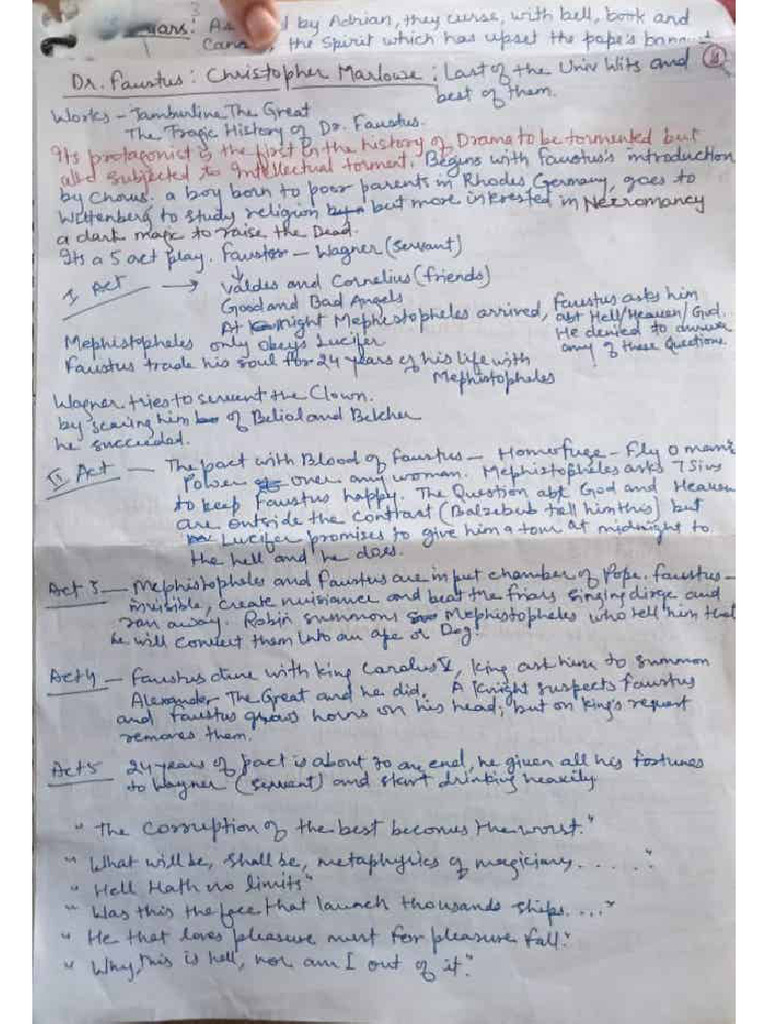 3
iars: As by Adrian, they curse, with bell, book and
Can the Spirit which has upset the pope's
Dr. Faustus: Christopher Marlowe: Last of the Univ Wits and
best of them.
Works - Tamburline The Great
The Tragic History of Dr. Faustus.
Its protagonist is the first in the history of Drama to be tormented but
also subjected to Intellectual torment. Begins with Faustus's introduction
by Chorus. a boy born to poor parents in Rhodes Germany, goes to
Wittenberg to study religion but more interested in Necromancy
a dark magic to raise the Dead.
Its a 5 act play. Faustus - Wagner (Servant)
I Act → Valdes and Cornelius (friends)
Good and Bad Angels
At night Mephistopheles arrived, Faustus asks him
abt Hell/Heaven/God.
He denied to answer
any of these Questions.
Mephistopheles only obeys Lucifer
Faustus trade his soul for 24 years of his life with
Mephistopheles
Wagner tries to servent the Clown.
by scaring him of Belial and Belcher
he succeeded.
II Act - The pact with Blood of Faustus - Homofuge - Fly O man!
Power over any woman. Mephistopheles asks 7 Sins
to keep Faustus happy. The Question abt God and Heaven
are outside the contract (Balzebub tell him this) but
Lucifer promises to give him a tour at midnight to
the hell and he does.
Act 3 - Mephistopheles and Faustus are in chamber of Pope. Faustus -
invisible, create nuisiance and beat the friars singing dirge and
ran away. Robin summons Mephistopheles who tell him that
he will convert them into an ape or Dog.
Act 4 - Faustus with King Carolus V, King ask him to summon
Alexander The Great and he did. A Knight suspects Faustus
and Faustus grows horns on his head, but on King's request
removes them.
Act 5 24 years of pact is about to an end, he given all his fortunes
to Wagner (servant) and start drinking heavily.
"The corruption of the best becomes the worst."
"What will be, shall be, metaphysics of magicians......"
"Hell Hath no limits"
"Was this the face that launch thousands ships...."
"He that loves pleasure must for pleasure fall."
"Why, this is hell, nor am I out of it."